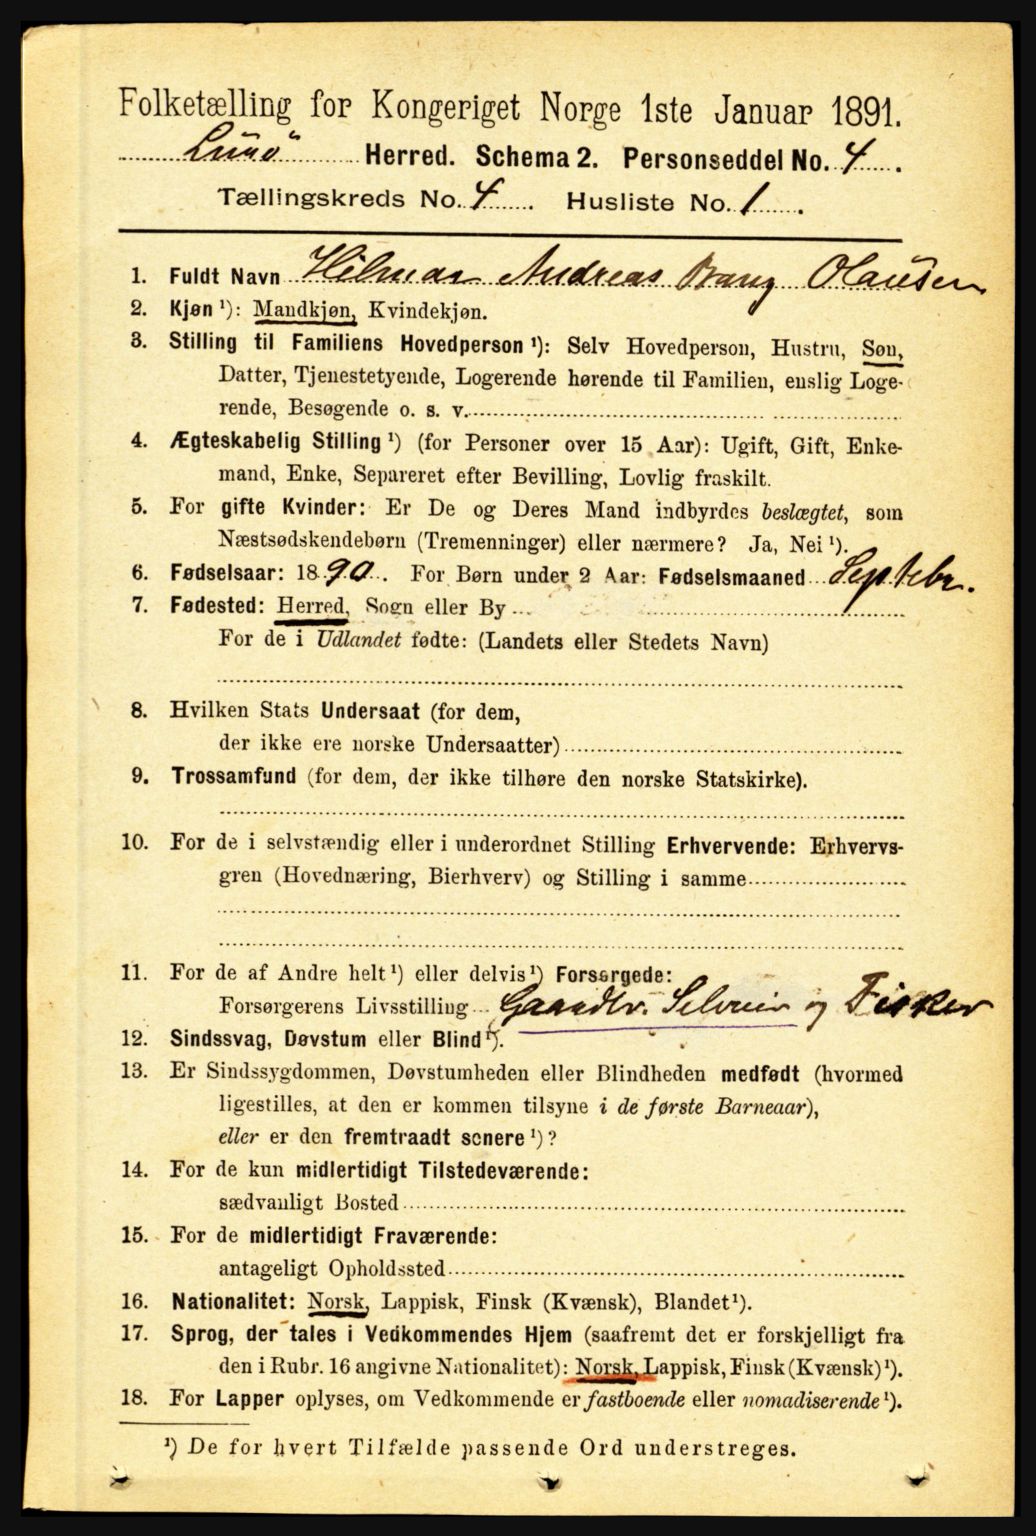 Folketælling for Kongeriget Norge 1ste Januar 1891.
Lurø Herred. Schema 2. Personseddel No. 4.
Tællingskreds No. 4. Husliste No. 1.
1. Fuldt Navn Hilmar Andreas Bang Olausen
2. Kjøn ¹): Mandkjøn, Kvindekjøn.
3. Stilling til Familiens Hovedperson ¹): Selv Hovedperson, Hustru, Søn,
Datter, Tjenestetyende, Logerende hørende til Familien, enslig Loge-
rende, Besøgende o. s. v.
4. Ægteskabelig Stilling ¹) (for Personer over 15 Aar): Ugift, Gift, Enke-
mand, Enke, Separeret efter Bevilling, Lovlig fraskilt.
5. For gifte Kvinder: Er De og Deres Mand indbyrdes beslægtet, som
Næstsødskendebørn (Tremenninger) eller nærmere? Ja, Nei ¹).
6. Fødselsaar: 1890. For Børn under 2 Aar: Fødselsmaaned Septebr.
7. Fødested: Herred, Sogn eller By
For de i Udlandet fødte: (Landets eller Stedets Navn)
8. Hvilken Stats Undersaat (for dem,
der ikke ere norske Undersaatter)
9. Trossamfund (for dem, der ikke tilhøre den norske Statskirke).
10. For de i selvstændig eller i underordnet Stilling Erhvervende: Erhvervs-
gren (Hovednæring, Bierhverv) og Stilling i samme
11. For de af Andre helt ¹) eller delvis ¹) Forsørgede:
Forsørgerens Livsstilling Gaardbr. Selveier og Fisker
12. Sindssvag, Døvstum eller Blind ¹).
13. Er Sindssygdommen, Døvstumheden eller Blindheden medfødt (hvormed
ligestilles, at den er kommen tilsyne i de første Barneaar),
eller er den fremtraadt senere ¹)?
14. For de kun midlertidigt Tilstedeværende:
sædvanligt Bosted
15. For de midlertidigt Fraværende:
antageligt Opholdssted
16. Nationalitet: Norsk, Lappisk, Finsk (Kvænsk), Blandet ¹).
17. Sprog, der tales i Vedkommendes Hjem (saafremt det er forskjelligt fra
den i Rubr. 16 angivne Nationalitet): Norsk, Lappisk, Finsk (Kvænsk) ¹).
18. For Lapper oplyses, om Vedkommende er fastboende eller nomadiserende ¹).
¹) De for hvert Tilfælde passende Ord understreges.